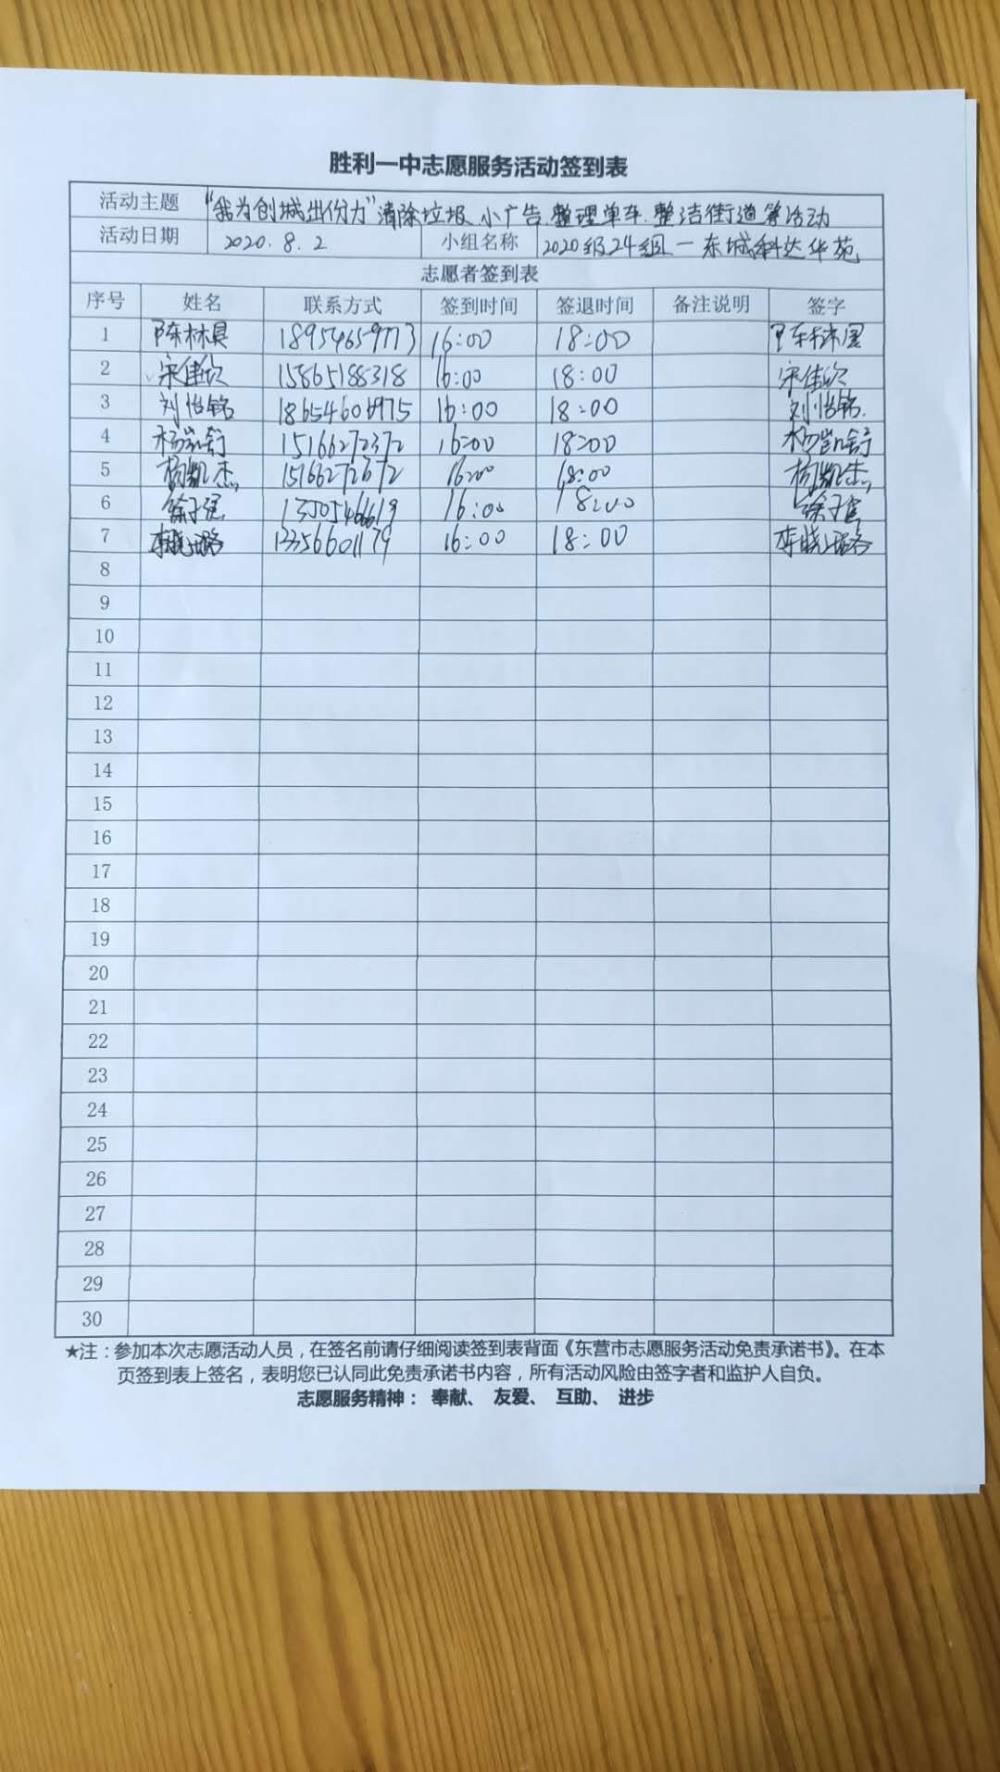 胜利一中志愿服务活动签到表
活动主题 "我为创城出份力"清除垃圾、小广告、整理单车、整洁街道等活动
活动日期 2020.8.2 小组名称 2020级24组一东城科达华苑
志愿者签到表
序号 姓名 联系方式 签到时间 签退时间 备注说明 签字
1 18954659773 16:00 18:00
2 宋佳欣 15865188318 16:00 18:00 宋佳欣
3 刘怡铭 16:00 18:00 刘怡铭
4 杨凯舒 15166272372 16:00 18:00 杨凯舒
5 杨凯杰 15166272672 16:00 18:00 杨凯杰
6 16:00 18:00
7 李晓璐 13356601179 16:00 18:00 李晓璐
8
9
10
11
12
13
14
15
16
17
18
19
20
21
22
23
24
25
26
27
28
29
30
★注：参加本次志愿活动人员，在签名前请仔细阅读签到表背面《东营市志愿服务活动免责承诺书》。在本
页签到表上签名，表明您已认同此免责承诺书内容，所有活动风险由签字者和监护人自负。
志愿服务精神： 奉献、 友爱、 互助、 进步